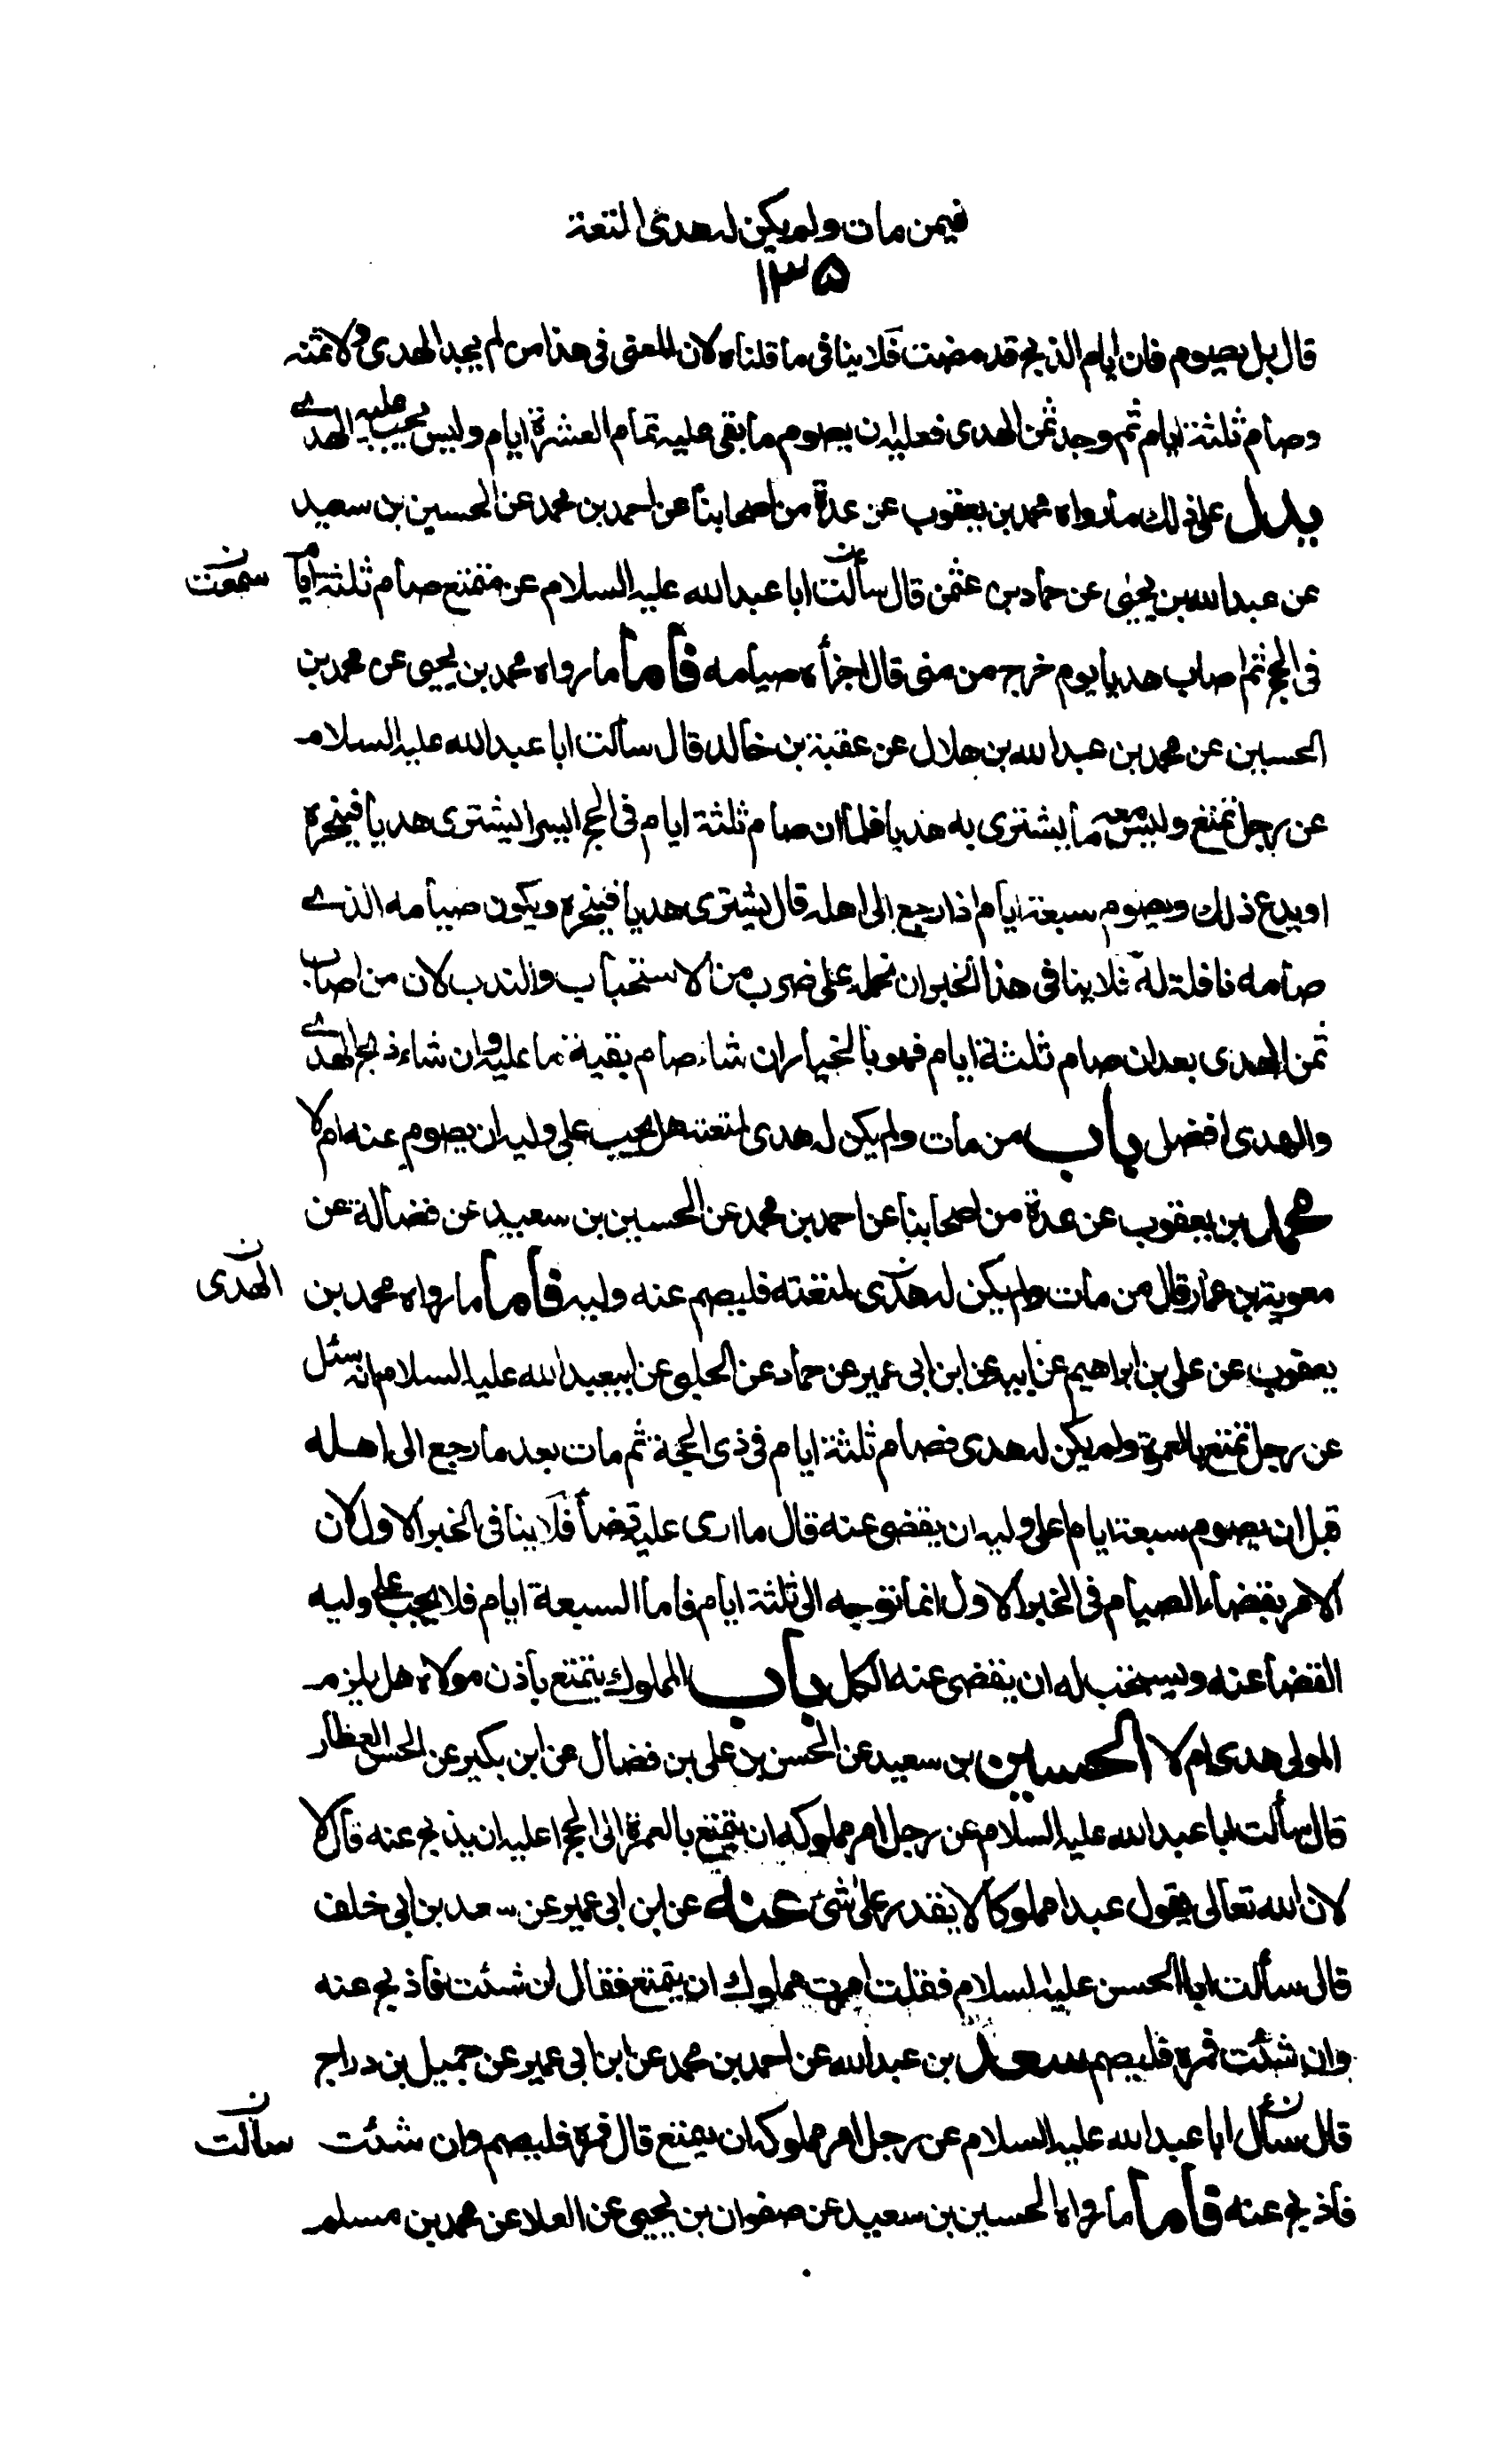 فيمن مات ولم يكن له هدى المتعة
١٣٥
قال بل يصوم فان ايام الذبح قد مضت فلا ينافى ما قلناه لان المعنى فى هذا من لم يجد الهدى ولا ثمنه
وصام ثلثة ايام ثم وجد ثمن الهدى فعليه ان يصوم ما بقى عليه تمام العشرة ايام وليس يجب عليه الهدى
يدل على ذلك ما رواه محمد بن يعقوب عن عدة من اصحابنا عن احمد بن محمد عن الحسين بن سعيد
عن عبد الله بن يحيى عن حماد بن عثمن قال سألت ابا عبد الله عليه السلام عن متمتع صام ثلثة ايام
سمعت ن
فى الحج ثم اصاب هديا يوم خرج من منى قال اجزأه صيامه فأما ما رواه محمد بن يحيى عن محمد بن
الحسين عن محمد بن عبد الله بن هلال عن عقبة بن خالد قال سألت ابا عبد الله عليه السلام
عن رجل تمتع وليس معه ما يشترى به هديا فلما ان صام ثلثة ايام فى الحج ايسر ايشترى هديا فينحره
او يدع ذلك ويصوم سبعة ايام اذا رجع الى اهله قال يشترى هديا فينحره ويكون صيامه الذى
صامه نافلة له فلا ينافى هذا الخبر ان نحمله على ضرب من الاستحباب والندب لان من اصاب
ثمن الهدى بعد ان صام ثلثة ايام فهو بالخيار ان شاء صام بقية ما عليه وان شاء ذبح الهدى
والهدى افضل باب من مات ولم يكن له هدى لمتعته هل يجب على وليه ان يصوم عنه ام لا
محمد بن يعقوب عن عدة من اصحابنا عن احمد بن محمد عن الحسين بن سعيد عن فضالة عن
معوية بن عمار قال من مات ولم يكن له هدى لمتعته فليصم عنه وليه فأما ما رواه محمد بن
الهدى ن
يعقوب عن على بن ابراهيم عن ابيه عن ابن ابى عمير عن حماد عن الحلبى عن ابى عبد الله عليه السلام انه سئل
عن رجل تمتع بالعمرة ولم يكن له هدى فصام ثلثة ايام فى ذى الحجة ثم مات بعد ما رجع الى اهله
قبل ان يصوم سبعة ايام اعلى وليه ان يقضى عنه قال ما ارى عليه قضأ فلا ينافى الخبر الاول لان
الامر بقضاء الصيام فى الخبر الاول انما توجه الى ثلثة ايام فاما السبعة ايام فلا يجب على وليه
القضا عنه ويستحب له ان يقضى عنه الكل باب المملوك يتمتع باذن مولاه هل يلزم
المولى هدى ام لا الحسين بن سعيد عن الحسن بن على بن فضال عن ابن بكير عن الحسن العطار
قال سألت ابا عبد الله عليه السلام عن رجل امر مملوكه ان يتمتع بالعمرة الى الحج اعليه ان يذبح عنه قال لا
لان الله تعالى يقول عبدا مملوكا لا يقدر على شئ عنه عن ابن ابى عمير عن سعد بن ابى خلف
قال سألت ابا الحسن عليه السلام فقلت امرت مملوك ان يتمتع فقال ان شئت فاذبح عنه
وان شئت فمره فليصم سعد بن عبد الله عن احمد بن محمد عن ابن ابى عمير عن جميل بن دراج
قال سأل ابا عبد الله عليه السلام عن رجل امر مملوكه ان يتمتع قال فمره فليصم وان شئت
سألت ن
فاذبح عنه فأما ما رواه الحسين بن سعيد عن صفوان بن يحيى عن العلا عن محمد بن مسلم